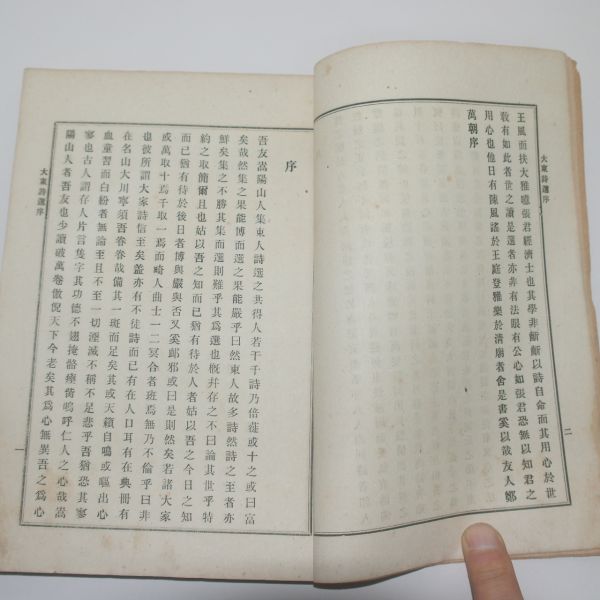 大東詩選序
二
王風而扶大雅噫張君經濟士也其學非斷斷以詩自命而其用心於世
敎有如此者世之讀是選者亦非有法眼有公心如張君恐無以知君之
用心也他日有陳風謠於王庭登雅樂於淸廟者舍是書奚以哉友人鄭
萬朝序
序
吾友嵩陽山人集東人詩選之共得人若干千詩乃倍蓰或十之或曰富
矣哉然集之果能博而選之果能嚴乎曰然東人故多詩然詩之至者亦
鮮矣集之不勝其集而選則難乎其爲選也慨幷存之不曰論其世乎特
約之取簡爾且也姑以吾之知而已猶有待於人者姑以吾之今日之知
而已猶有待於後日者博與嚴與否又奚卹邪或曰是則然矣若諸大家
或萬取十焉千取一焉而畸人曲士一二冥合者班焉無乃不倫乎曰非
也彼所謂大家詩信至矣盖亦有不徒詩而已有在人口耳有在典冊有
在名山大川寧須吾眷眷哉備其一斑而足矣其或天籟自鳴或嘔出心
血童習而白紛者無論至且不至一切湮滅不稱不足悲乎吾猶恐其寥
寥也古人謂存人片言隻字其功德不翅掩骼瘞胔嗚呼仁人之心哉嵩
陽山人者吾友也少讀破萬卷傲倪天下今老矣其爲心無異吾之爲心
大東詩選序
一